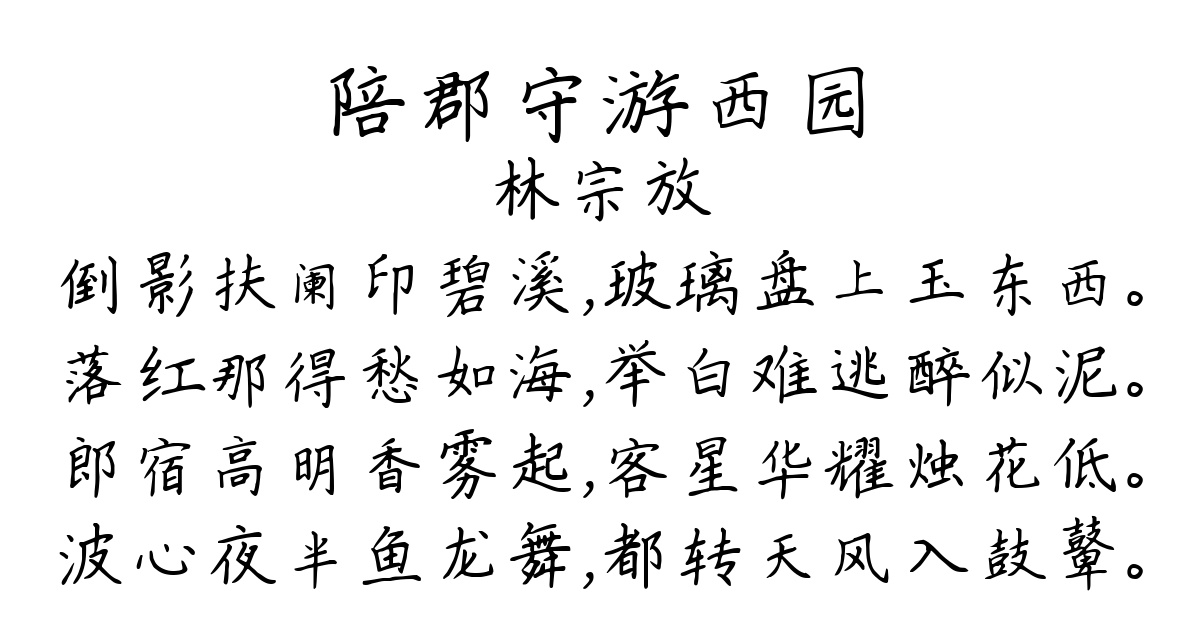 陪郡守游西园
林宗放
倒影扶阑印碧溪,玻璃盘上玉东西。
落红那得愁如海,举白难逃醉似泥。
郎宿高明香雾起,客星华耀烛花低。
波心夜半鱼龙舞,都转天风入鼓鼙。